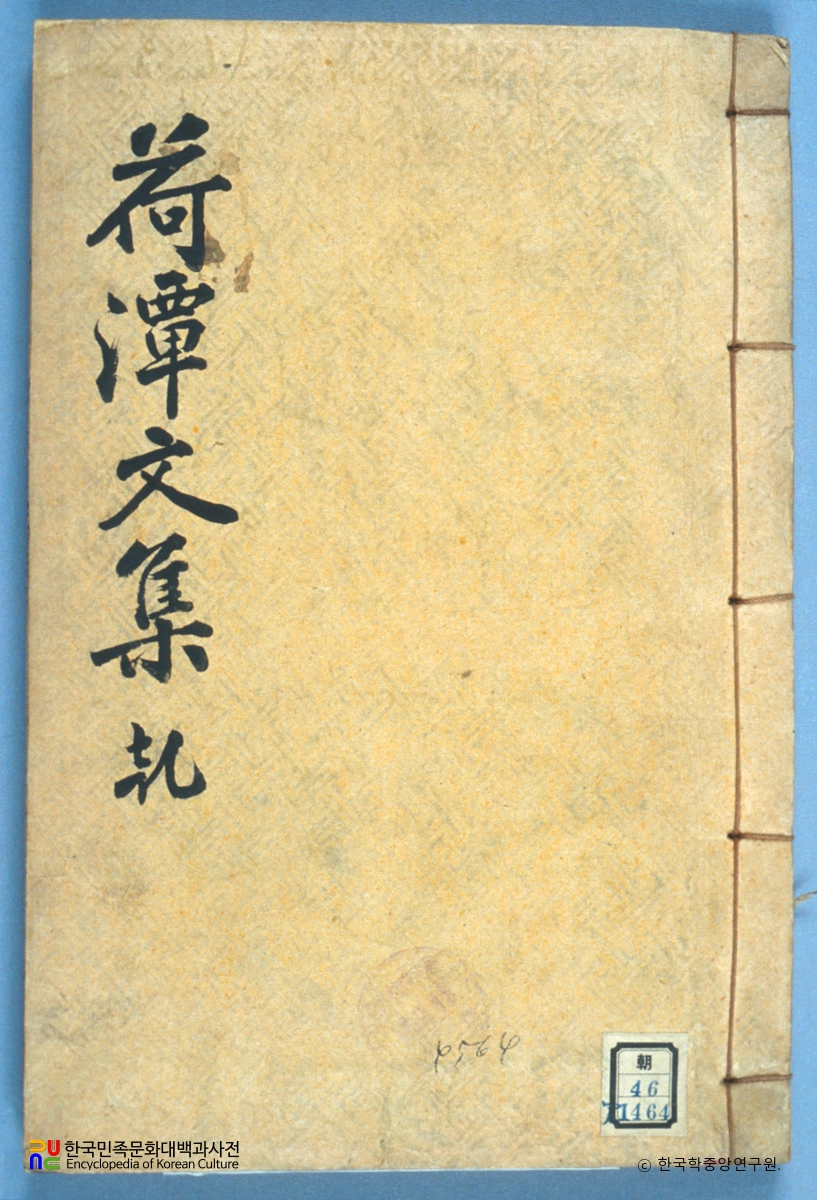 荷潭文集 乹
朝
46
1464
한국민족문화대백과사전
Encyclopedia of Korean Culture
© 한국학중앙연구원.